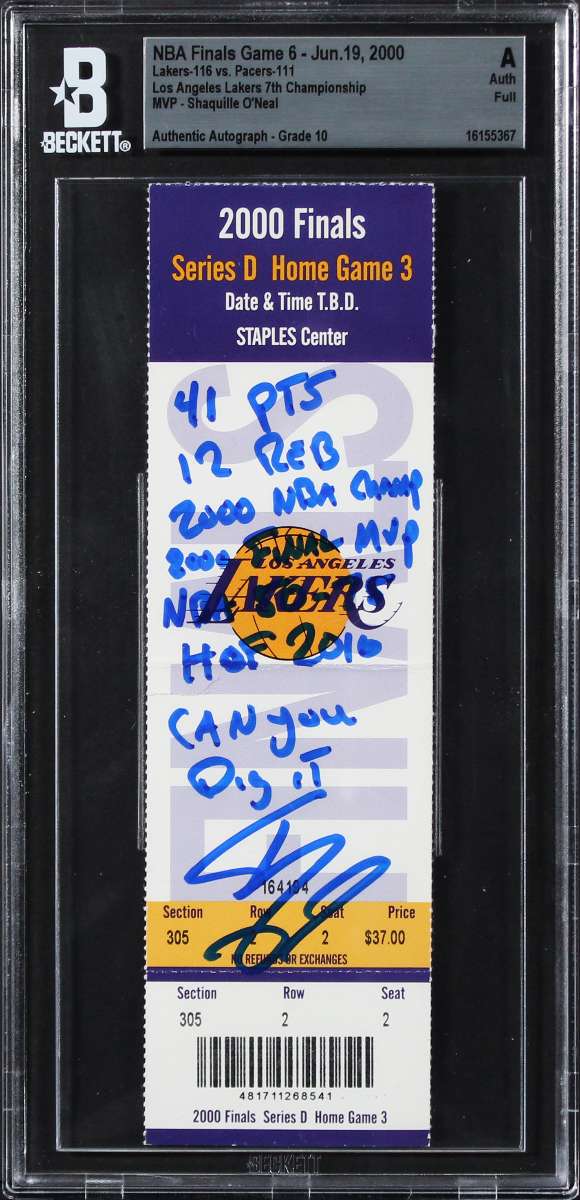 B
BECKETT®
NBA Finals Game 6 - Jun.19, 2000
Lakers-116 vs. Pacers-111
Los Angeles Lakers 7th Championship
MVP - Shaquille O'Neal
Authentic Autograph - Grade 10
A
Auth
Full
16155367
2000 Finals
Series D Home Game 3
Date & Time T.B.D.
STAPLES Center
FINALS
41 PTS
12 REB
2000 NBA CHAMP
2000 FINAL MVP
LOS ANGELES
LAKERS
NBA
HOF 2016
CAN you
Dig iT
164104
Section Row Seat Price
305 2 2 $37.00
NO REFUNDS OR EXCHANGES
Section Row Seat
305 2 2
481711268541
2000 Finals Series D Home Game 3
BECKETT